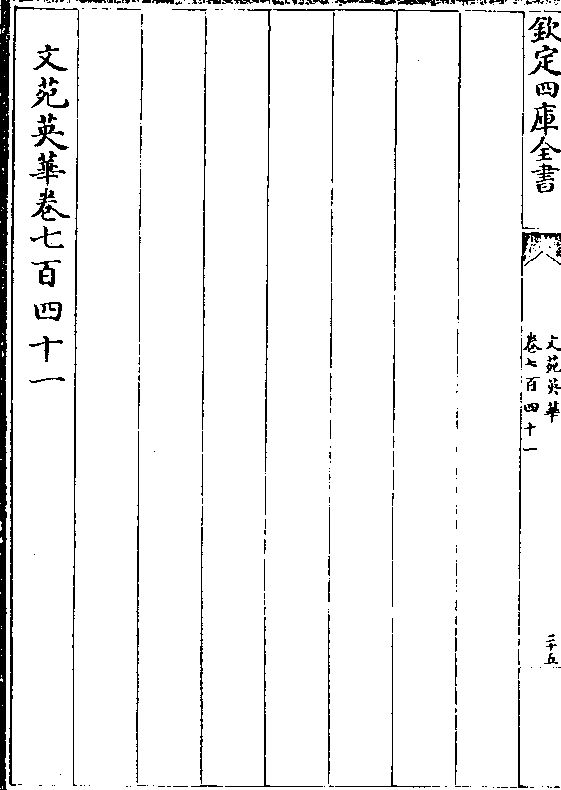 欽定四庫全書
文苑英華
卷七百四十一
二十五
文苑英華卷七百四十一